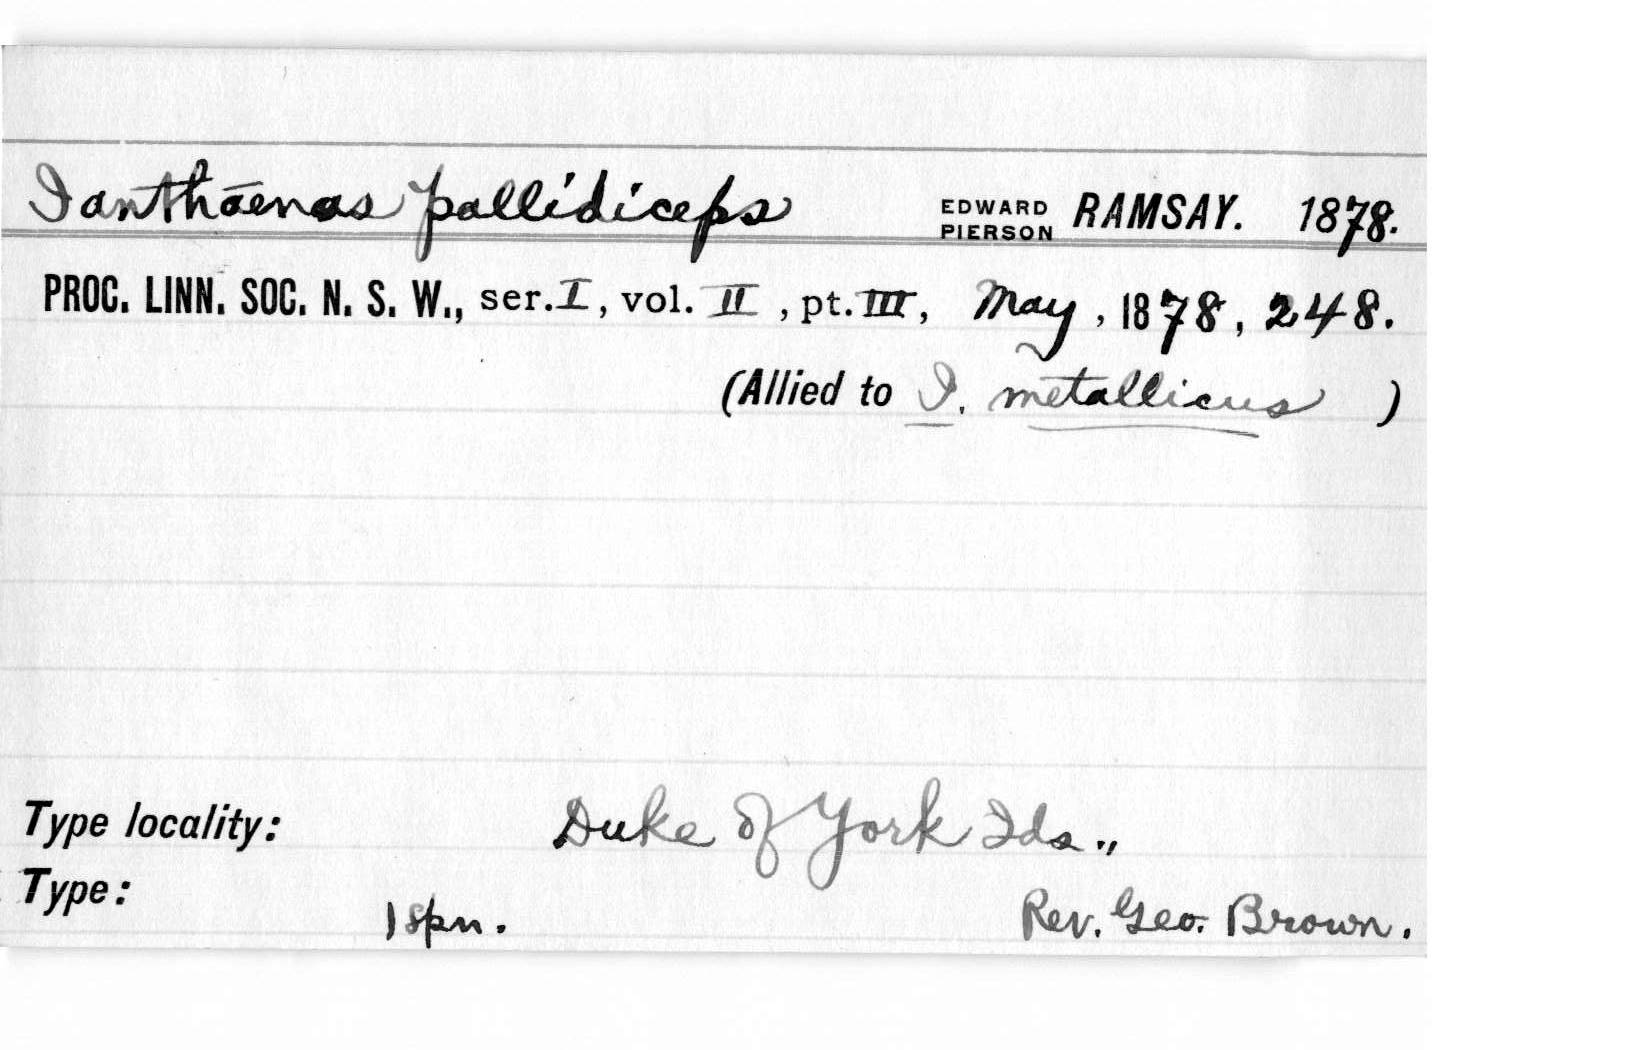 Ianthaenas pallidiceps EDWARD PIERSON RAMSAY. 1878.
PROC. LINN. SOC. N. S. W., ser. I, vol. II, pt. III, May, 1878, 248.
(Allied to I. metallicus)
Type locality: Duke of York Ids.,
Type: 1 spn. Rev. Geo. Brown.